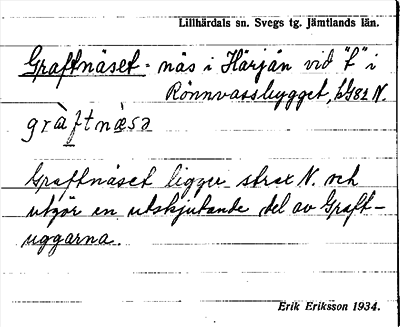 Lillhärdals sn. Svegs tg. Jämtlands län.
Graftnäset - näs i Härjån vid "t" i
Rönnvassbygget, bG82 N.
gràftnæ̀sə
Graftnäset ligger strax N. och
utgör en utskjutande del av Graft-
uggarna.
Erik Eriksson 1934.